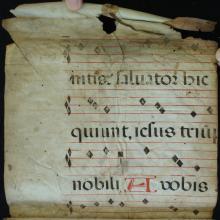 mitis. saluator hic
quiunt, iesus triu
nobili A. vobis